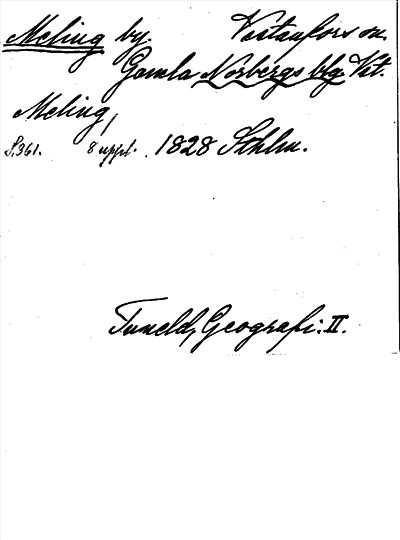 Meling by. Västanfors sn.
Gamla Norbergs blg. Vst.
Meling,
S. 361. 8 uppl. 1828 Sthlm.
Tuneld, Geografi: II.